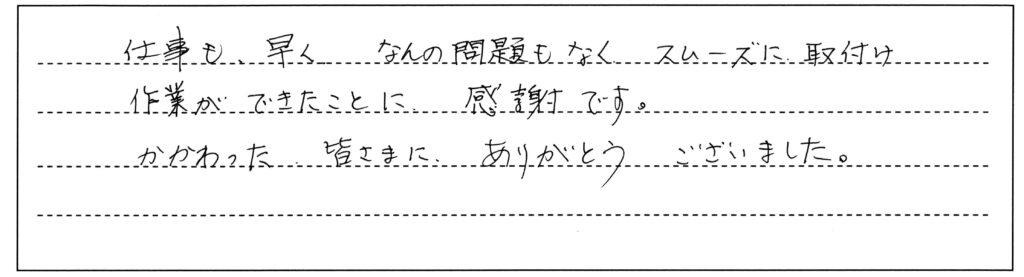 仕事も、早く なんの問題もなく スムーズに 取付け
作業が できたことに 感謝です。
かかわった 皆さまに ありがとう ございました。